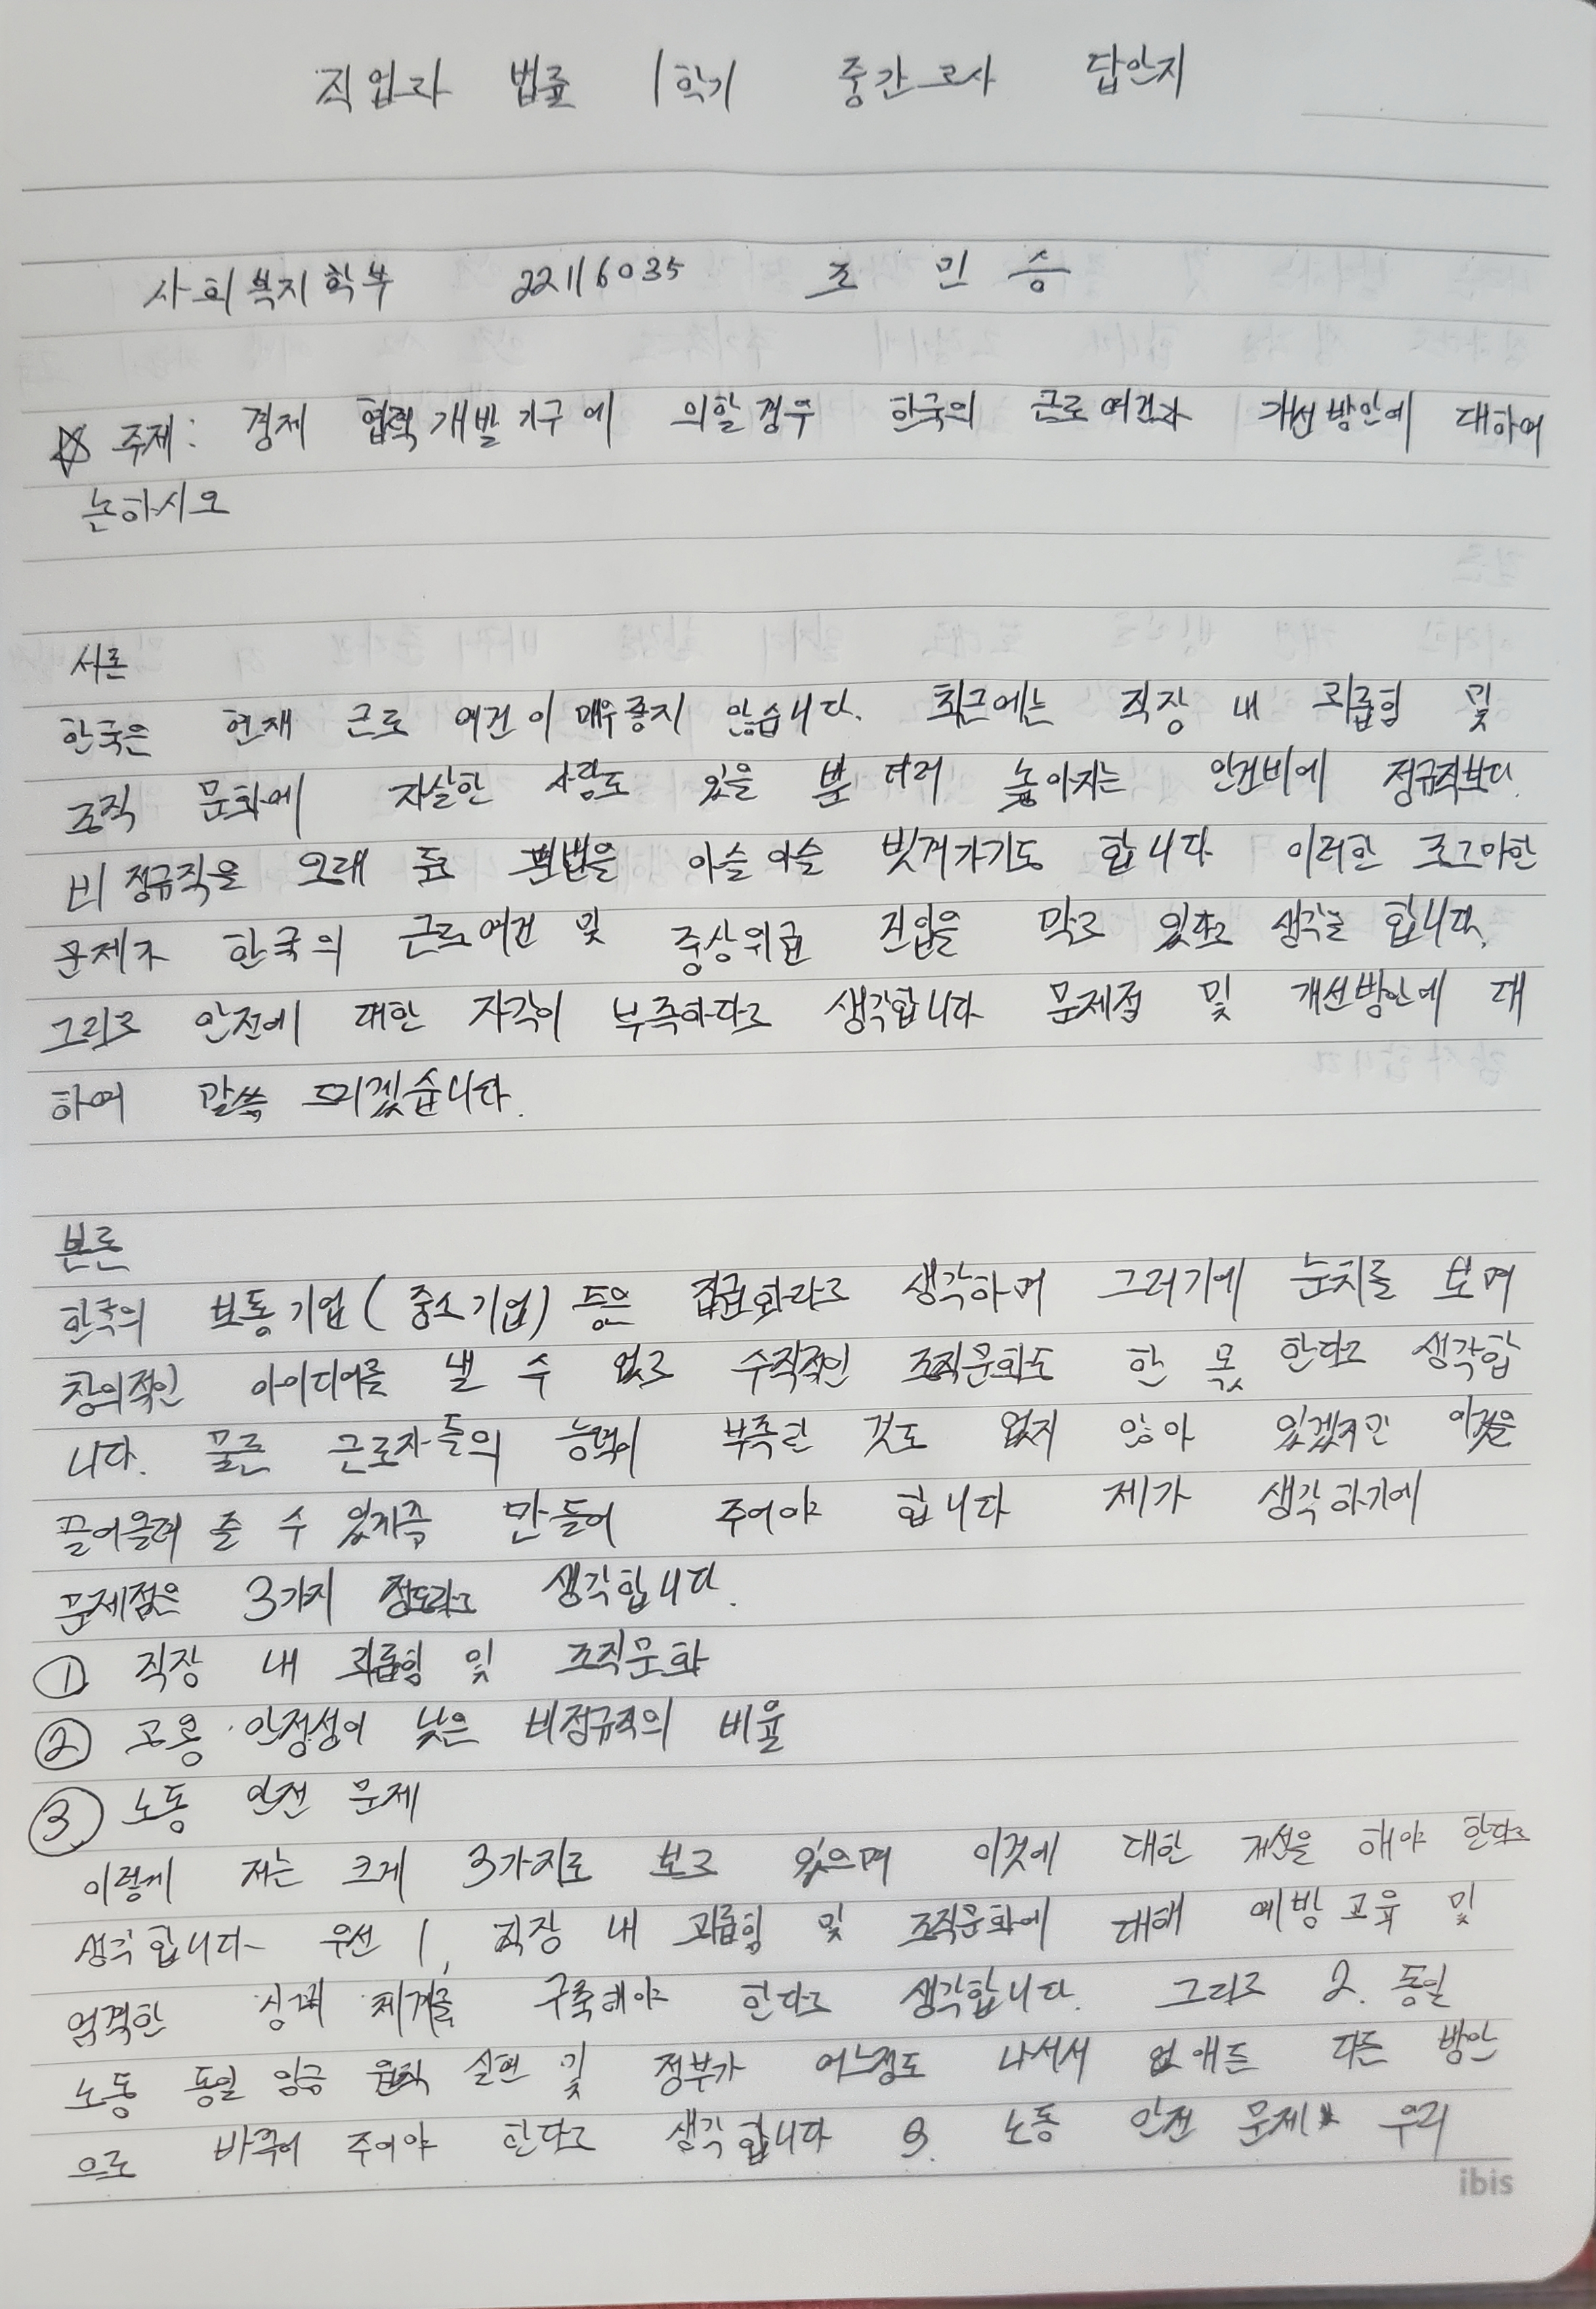 직업과 법률 1학기 중간고사 답안지
사회복지학부 22116035 조민승
☆ 주제: 경제 협력 개발기구에 의할경우 한국의 근로여건과 개선방안에 대하여
논하시오
서론
한국은 현재 근로 여건이 매우좋지 않습니다. 최근에는 직장 내 괴롭힘 및
조직 문화에 자살한 사람도 있을 뿐 더러 높아지는 인건비에 정규직보다
비정규직을 오래 두고 편법을 아슬아슬 빗겨가기도 합니다 이러한 조그마한
문제가 한국의 근로여건 및 중상위권 진입을 막고 있다고 생각을 합니다.
그리고 안전에 대한 자각이 부족하다고 생각합니다 문제점 및 개선방안에 대
하여 말씀 드리겠습니다.
본론
한국의 보통기업(중소기업) 등은 집권화라고 생각하며 그러기에 눈치를 보며
창의적인 아이디어를 낼 수 없고 수직적인 조직문화도 한 몫 한다고 생각합
니다. 물론 근로자들의 능력이 부족한 것도 없지 않아 있겠지만 이것을
끌어올려 줄 수 있게끔 만들어 주어야 합니다 제가 생각하기에
문제점은 3가지 정도라고 생각합니다.
① 직장 내 괴롭힘 및 조직문화
② 고용 안정성이 낮은 비정규직의 비율
③ 노동 안전 문제
이렇게 저는 크게 3가지로 보고 있으며 이것에 대한 개선을 해야 한다고
생각합니다 우선 1, 직장 내 괴롭힘 및 조직문화에 대해 예방교육 및
엄격한 징계 체계를 구축해야 한다고 생각합니다. 그리고 2. 동일
노동 동일 임금 원칙 실현 및 정부가 어느정도 나서서 없애든 다른 방안
으로 바꾸어 주어야 한다고 생각합니다 3. 노동 안전 문제 우리
ibis